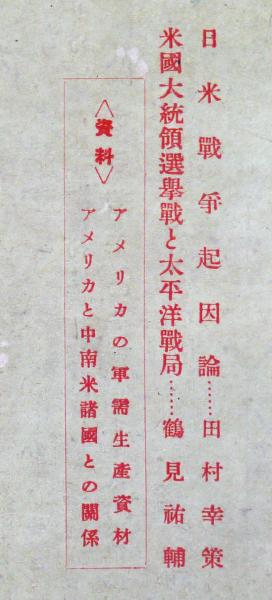 日米戰爭起因論……田村幸策
米國大統領選擧戰と太平洋戰局……鶴見祐輔
〈資料〉
アメリカの軍需生產資材
アメリカと中南米諸國との關係